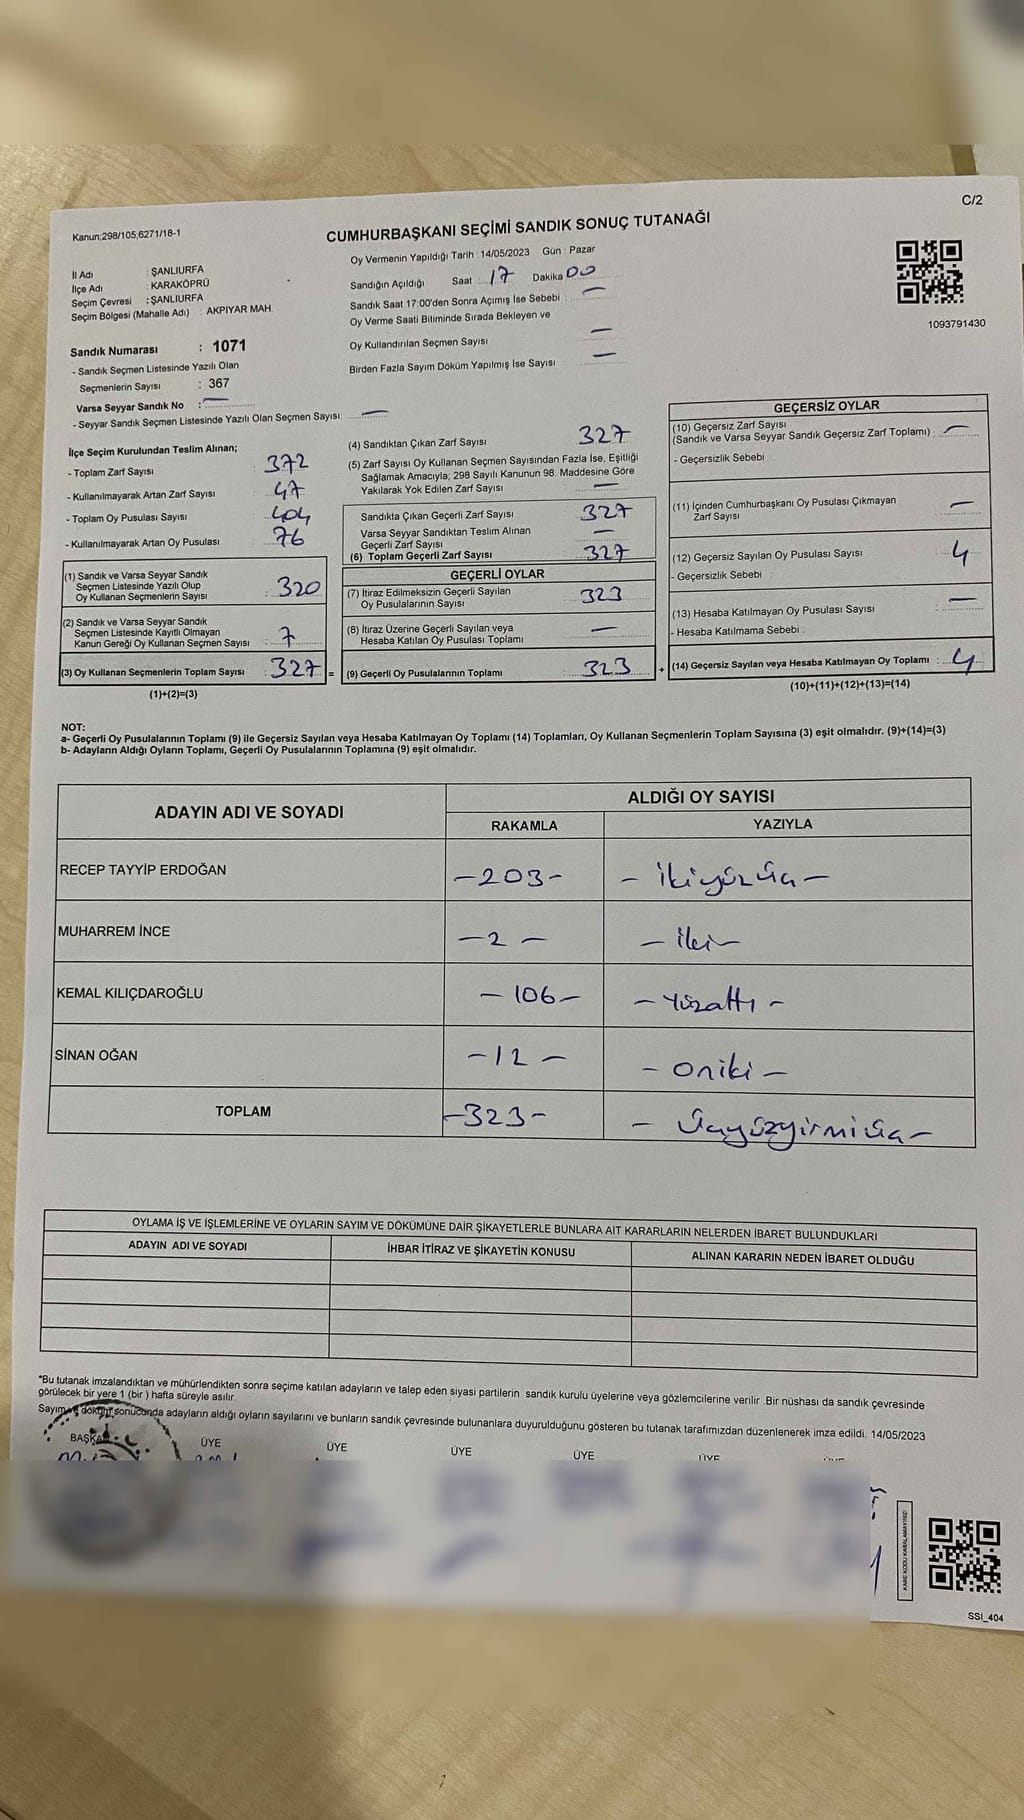 C/2
Kanun;298/105;6271/18-1
CUMHURBAŞKANI SEÇİMİ SANDIK SONUÇ TUTANAĞI
Oy Vermenin Yapıldığı Tarih : 14/05/2023 Gün : Pazar
İl Adı : ŞANLIURFA
İlçe Adı : KARAKÖPRÜ
Seçim Çevresi : ŞANLIURFA
Seçim Bölgesi (Mahalle Adı) : AKPIYAR MAH.
Sandığın Açıldığı Saat : 17 Dakika 00
Sandık Saat 17:00'den Sonra Açımış İse Sebebi : —
Oy Verme Saati Bitiminde Sırada Bekleyen ve
Oy Kullandırılan Seçmen Sayısı —
Birden Fazla Sayım Döküm Yapılmış İse Sayısı —
1093791430
Sandık Numarası : 1071
- Sandık Seçmen Listesinde Yazılı Olan
Seçmenlerin Sayısı : 367
Varsa Seyyar Sandık No : —
- Seyyar Sandık Seçmen Listesinde Yazılı Olan Seçmen Sayısı: —
İlçe Seçim Kurulundan Teslim Alınan;
- Toplam Zarf Sayısı : 372
- Kullanılmayarak Artan Zarf Sayısı : 47
- Toplam Oy Pusulası Sayısı : 404
- Kullanılmayarak Artan Oy Pusulası : 76
(1) Sandık ve Varsa Seyyar Sandık
Seçmen Listesinde Yazılı Olup
Oy Kullanan Seçmenlerin Sayısı : 320
(2) Sandık ve Varsa Seyyar Sandık
Seçmen Listesinde Kayıtlı Olmayan
Kanun Gereği Oy Kullanan Seçmen Sayısı : 7
(3) Oy Kullanan Seçmenlerin Toplam Sayısı : 327 =
(1)+(2)=(3)
(4) Sandıktan Çıkan Zarf Sayısı 327
(5) Zarf Sayısı Oy Kullanan Seçmen Sayısından Fazla İse, Eşitliği
Sağlamak Amacıyla; 298 Sayılı Kanunun 98. Maddesine Göre
Yakılarak Yok Edilen Zarf Sayısı : —
Sandıkta Çıkan Geçerli Zarf Sayısı : 327
Varsa Seyyar Sandıktan Teslim Alınan
Geçerli Zarf Sayısı : —
(6) Toplam Geçerli Zarf Sayısı : 327
GEÇERLİ OYLAR
(7) İtiraz Edilmeksizin Geçerli Sayılan
Oy Pusulalarının Sayısı : 323
(8) İtiraz Üzerine Geçerli Sayılan veya
Hesaba Katılan Oy Pusulası Toplamı : —
(9) Geçerli Oy Pusulalarının Toplamı : 323 +
GEÇERSİZ OYLAR
(10) Geçersiz Zarf Sayısı
(Sandık ve Varsa Seyyar Sandık Geçersiz Zarf Toplamı) : —
- Geçersizlik Sebebi :
(11) İçinden Cumhurbaşkanı Oy Pusulası Çıkmayan
Zarf Sayısı : —
(12) Geçersiz Sayılan Oy Pusulası Sayısı : 4
- Geçersizlik Sebebi :
(13) Hesaba Katılmayan Oy Pusulası Sayısı : —
- Hesaba Katılmama Sebebi :
(14) Geçersiz Sayılan veya Hesaba Katılmayan Oy Toplamı : 4
(10)+(11)+(12)+(13)=(14)
NOT:
a- Geçerli Oy Pusulalarının Toplamı (9) ile Geçersiz Sayılan veya Hesaba Katılmayan Oy Toplamı (14) Toplamları, Oy Kullanan Seçmenlerin Toplam Sayısına (3) eşit olmalıdır. (9)+(14)=(3)
b- Adayların Aldığı Oyların Toplamı, Geçerli Oy Pusulalarının Toplamına (9) eşit olmalıdır.
ADAYIN ADI VE SOYADI ALDIĞI OY SAYISI
RAKAMLA YAZIYLA
RECEP TAYYİP ERDOĞAN -203- - ikiyüzüç -
MUHARREM İNCE -2- - iki -
KEMAL KILIÇDAROĞLU -106- - Yüzaltı -
SİNAN OĞAN -12- - oniki -
TOPLAM -323- - üçyüzyirmiüç -
OYLAMA İŞ VE İŞLEMLERİNE VE OYLARIN SAYIM VE DÖKÜMÜNE DAİR ŞİKAYETLERLE BUNLARA AİT KARARLARIN NELERDEN İBARET BULUNDUKLARI
ADAYIN ADI VE SOYADI İHBAR İTİRAZ VE ŞİKAYETİN KONUSU ALINAN KARARIN NEDEN İBARET OLDUĞU
*Bu tutanak imzalandıktan ve mühürlendikten sonra seçime katılan adayların ve talep eden siyasi partilerin sandık kurulu üyelerine veya gözlemcilerine verilir .Bir nüshası da sandık çevresinde
görülecek bir yere 1 (bir ) hafta süreyle asılır.
Sayım ve döküm sonucunda adayların aldığı oyların sayılarını ve bunların sandık çevresinde bulunanlara duyurulduğunu gösteren bu tutanak tarafımızdan düzenlenerek imza edildi. 14/05/2023
BAŞKAN ÜYE ÜYE ÜYE ÜYE ÜYE
KARE KODU KARALAMAYINIZ!
SSI_404